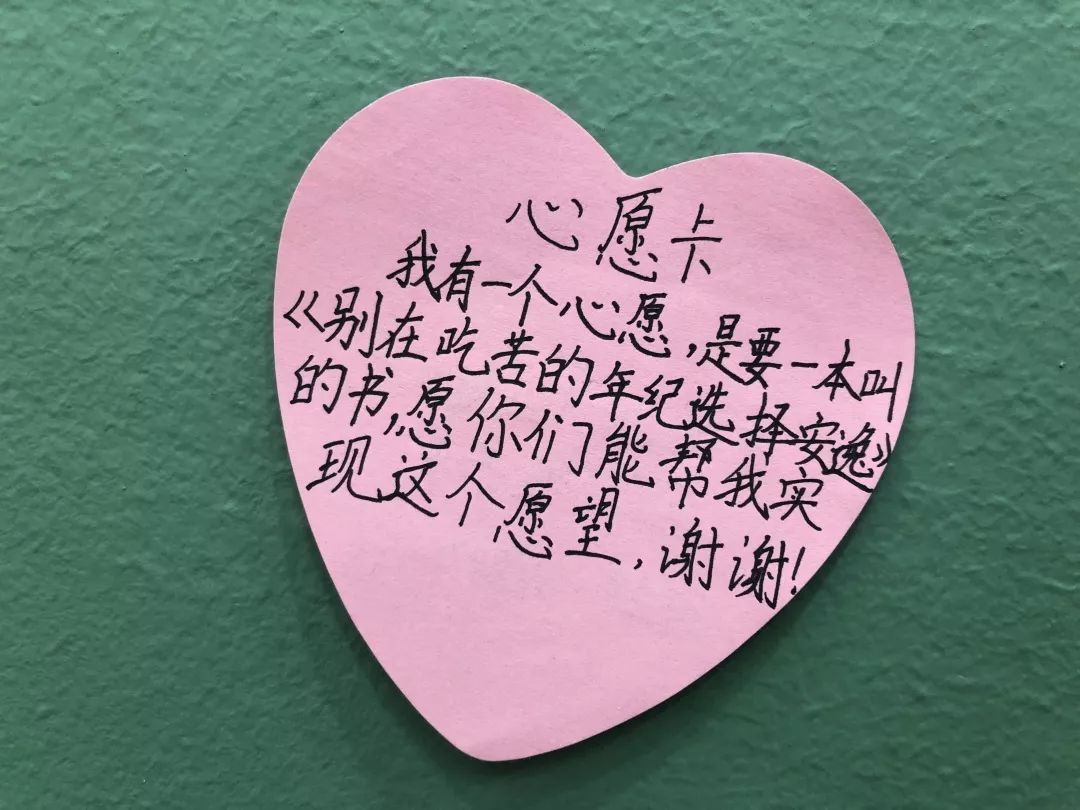 心愿卡
我有一个心愿,是要一本叫
《别在吃苦的年纪选择安逸》
的书,愿你们能帮我实
现这个愿望,谢谢!